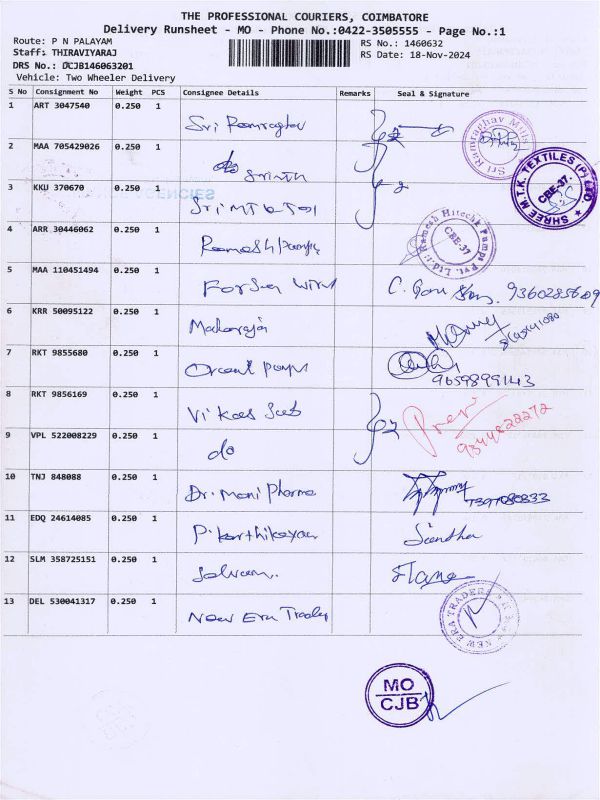 THE PROFESSIONAL COURIERS, COIMBATORE
Delivery Runsheet - MO - Phone No.:0422-3505555 - Page No.:1
Route: P N PALAYAM
RS No.: 1460632
Staff: THIRAVIYARAJ
RS Date: 18-Nov-2024
DRS No.: DCJB146063201
Vehicle: Two Wheeler Delivery
S No Consignment No Weight PCS Consignee Details Remarks Seal & Signature
1 ART 3047540 0.250 1 Sri Ramraghav
Sri Ramraghav Mills
2 MAA 705429026 0.250 1 do Srinth
3 KKU 370670 0.250 1
SHREE M.T.K. TEXTILES (P) LTD
CBE-37.
4 ARR 30446062 0.250 1 Ramesh pumps
Ramesh Hitech Pumps Pvt. Ltd.
CBE-37
5 MAA 110451494 0.250 1 C. Gou 9360285609
6 KRR 50095122 0.250 1 Maharaja
7 RKT 9855680 0.250 1 pumps
9659899143
8 RKT 9856169 0.250 1 Vikas
9344822272
9 VPL 522008229 0.250 1 do
10 TNJ 848088 0.250 1 Dr. Mani Pharma
7397080833
11 EDQ 24614085 0.250 1 P. Karthikeyan
12 SLM 358725151 0.250 1 Selvam
13 DEL 530041317 0.250 1 New Era Trades
NEW ERA TRADERS
MO
CJB